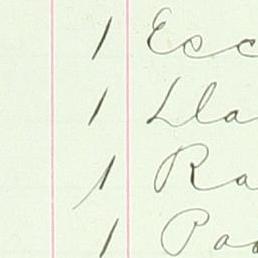 1 Esc
1 Lla
1 Ra
1 Pa